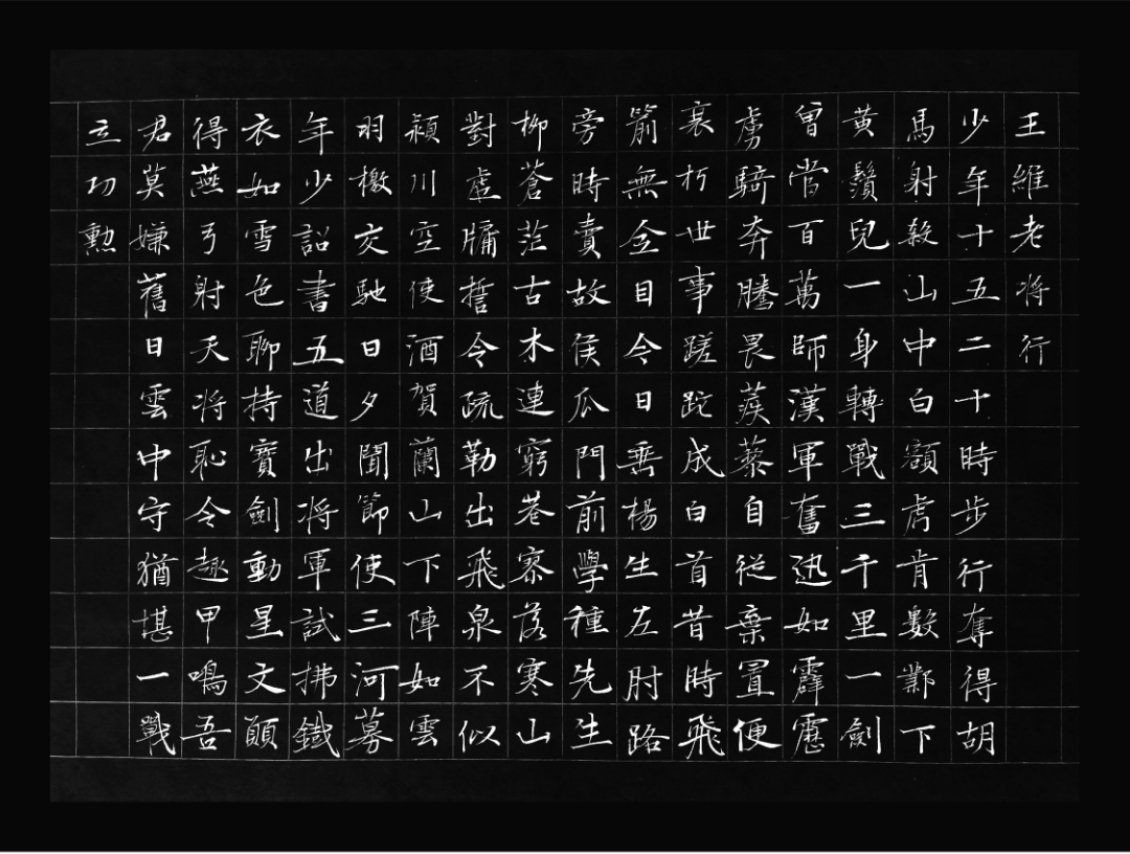 王維老將行
少年十五二十時步行奪得胡
馬射殺山中白額虎肯數鄴下
黃鬚兒一身轉戰三千里一劍
曾當百萬師漢軍奮迅如霹靂
虜騎奔騰畏蒺藜自從棄置便
衰朽世事蹉跎成白首昔時飛
箭無全目今日垂楊生左肘路
旁時賣故侯瓜門前學種先生
柳蒼茫古木連窮巷寥落寒山
對虛牖誓令疏勒出飛泉不似
潁川空使酒賀蘭山下陣如雲
羽檄交馳日夕聞節使三河募
年少詔書五道出將軍試拂鐵
衣如雪色聊持寶劍動星文願
得燕弓射天將恥令越甲鳴吾
君莫嫌舊日雲中守猶堪一戰
立功勳